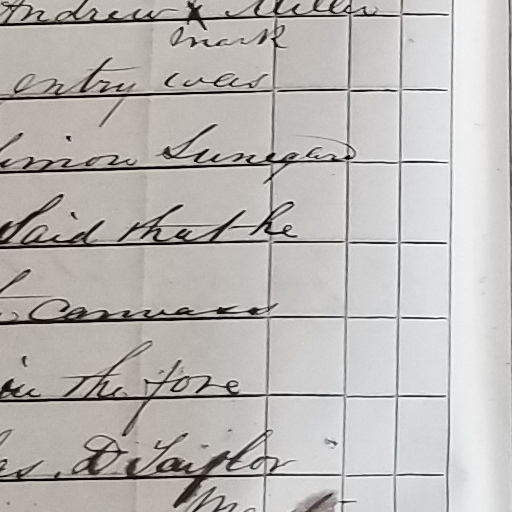 Andrew X Miller
mark
entry was
Simon Lunegard
Said that he
Canvass
in the fore
as. D Taylor